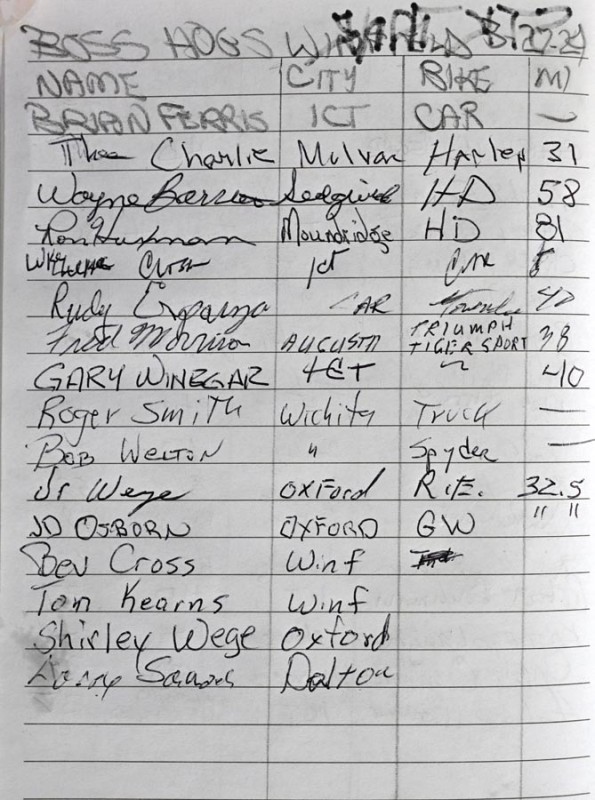 BOSS HOGS
NAME CITY BIKE MI
BRIAN FERRIS ICT CAR —
Charlie Mulvan Harley 31
Wayne Sedgwick HD 58
Ron Moundridge HD 81
ICT Car
Rudy Esparza CAR 40
Fred Morrison AUGUSTA TRIUMPH TIGER SPORT 38
GARY WINEGAR ICT ~ 40
Roger Smith Wichita Truck —
BOB WELTON " Spyder —
Jr Wege OXFord 32.5
JD OSBORN OXFORD GW " "
Bev Cross Winf
Tom Kearns Winf
Shirley Wege Oxford
Dalton